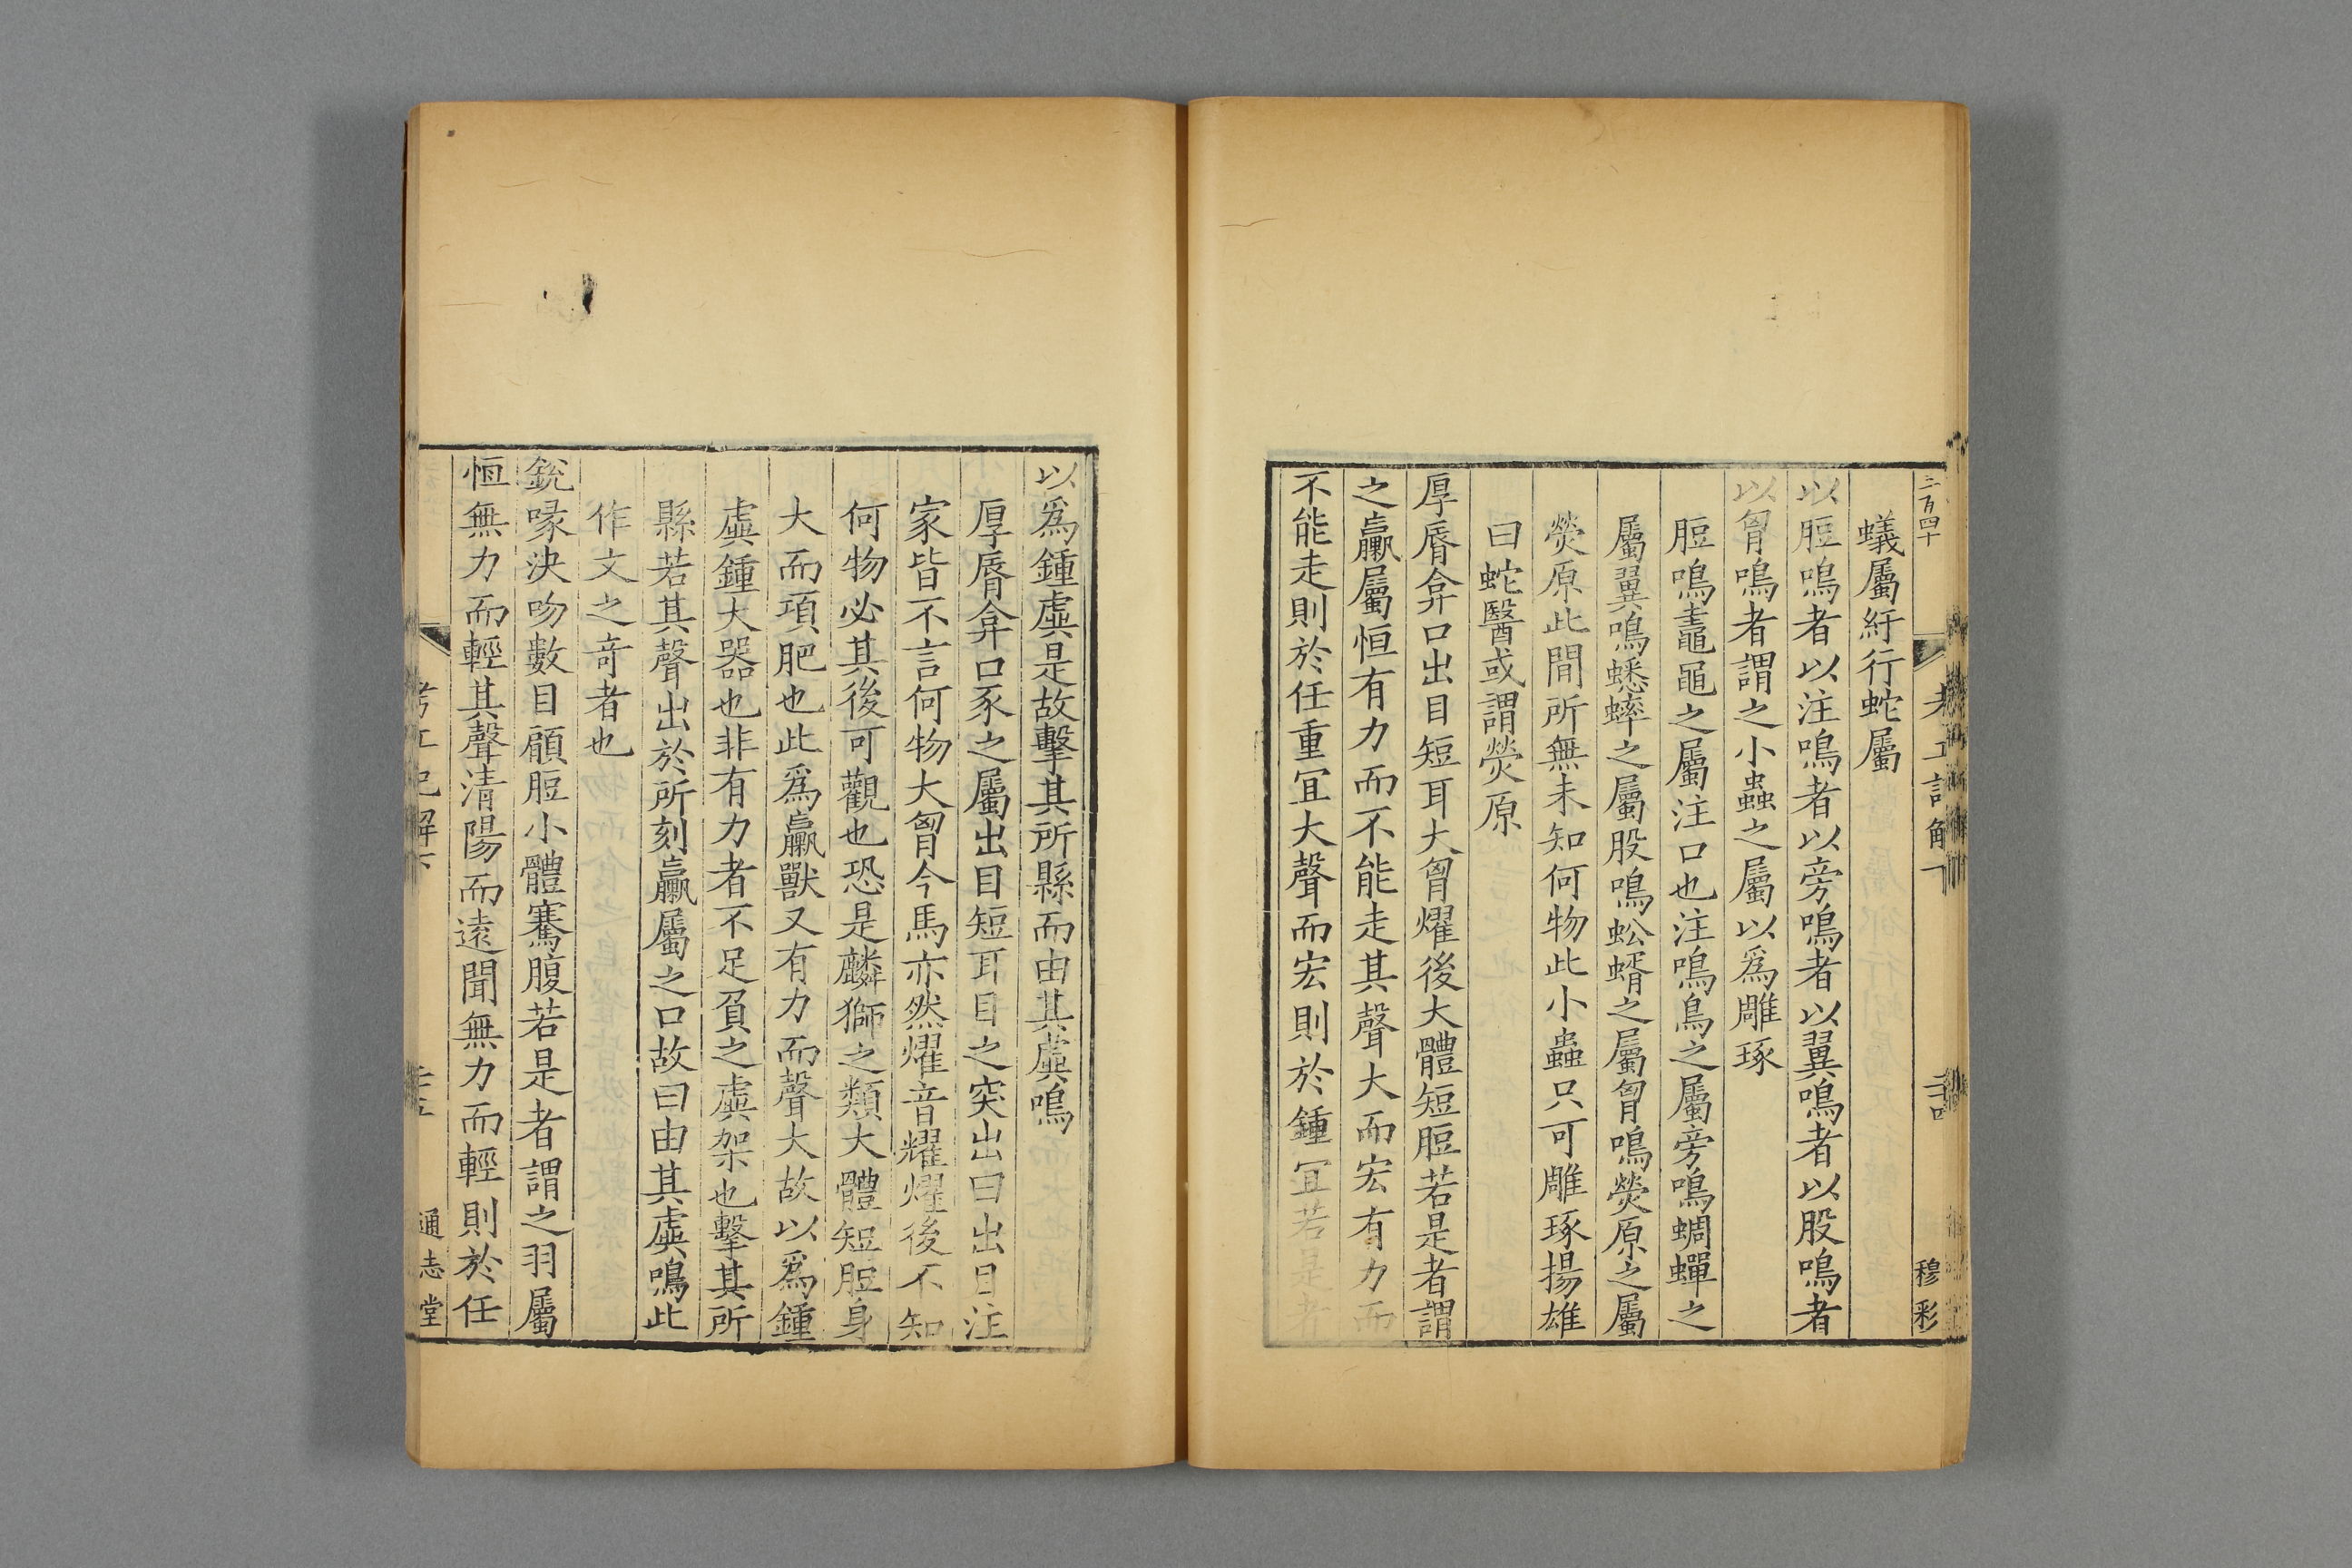 二百四十
考工記解下
穆彩
蟻屬紆行蛇屬
以脰鳴者以注鳴者以旁鳴者以翼鳴者以股鳴者
以胷鳴者謂之小蟲之屬以爲雕琢
脰鳴鼃黽之屬注口也注鳴鳥之屬旁鳴蜩蟬之
屬翼鳴蟋蟀之屬股鳴蚣蝑之屬胷鳴熒原之屬
熒原此間所無未知何物此小蟲只可雕琢揚雄
曰蛇醫或謂熒原
厚脣弇口出目短耳大胷燿後大體短脰若是者謂
之臝屬恒有力而不能走其聲大而宏有力而
不能走則於任重宜大聲而宏則於鍾宜若是者
以爲鍾虡是故擊其所縣而由其虡鳴
厚脣弇口豕之屬出目短耳目之突出曰出目注
家皆不言何物大胷今馬亦然燿音耀燿後不知
何物必其後可觀也恐是麟獅之類大體短脰身
大而項肥也此爲臝獸又有力而聲大故以爲鍾
虡鍾大器也非有力者不足負之虡架也擊其所
縣若其聲出於所刻臝屬之口故曰由其虡鳴此
作文之竒者也
銳喙決吻數目顅脰小體騫腹若是者謂之羽屬
恒無力而輕其聲清陽而遠聞無力而輕則於任
考工記解下
二十五
通志堂